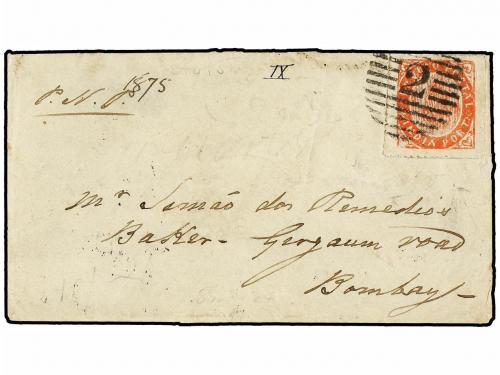 IX
P. N. P. 1875
2
INDIA PORT
Mr. Simão dos Remedios
Baker - Gergaum road
Bombay -